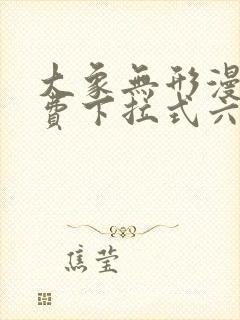 大象無形漫
費下拉式六
焦莹